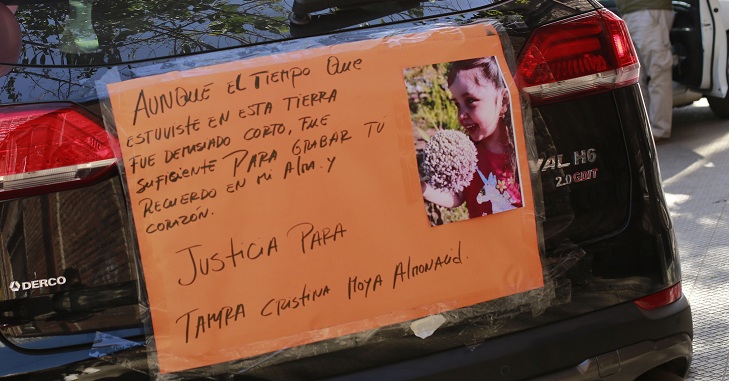 AUNQUE EL TIEMPO QUE
ESTUVISTE EN ESTA TIERRA
FUE DEMASIADO CORTO, FUE
SUFICIENTE PARA GRABAR TÚ
RECUERDO EN MI ALMA. Y
CORAZÓN.
JUSTICIA PARA
TAMRA CRISTINA MOYA ALMONACID.
DERCO
VAL H6
2.0 GDIT